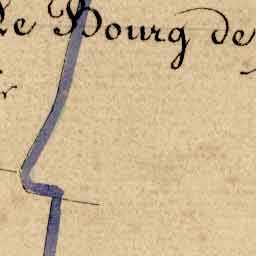 Le Bourg de